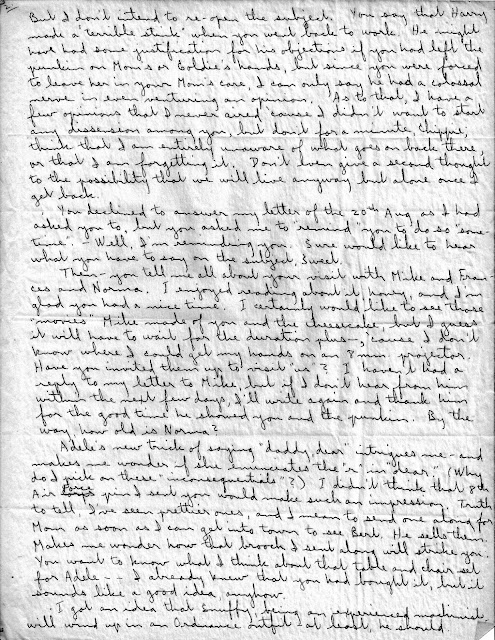 But I don't intend to re-open the subject. You say that Harry
made a "terrible stink" when you went back to work. He might
have had some justification for his objections if you had left the
punkin on Mom's or Goldie's hands, but since you were forced
to leave her in your Mom's care, I can only say he had a colossal
nerve in even venturing an opinion. As to that, I have a
few opinions that I never aired 'cause I didn't want to start
any dissension among you, but don't for a minute, Chippie,
think that I am entirely unaware of what goes on back there,
or that I am forgetting it. Don't even give a second thought
to the possibility that we will live anyway but alone once I
get back.
You declined to answer my letter of the 20th Aug. as I had
asked you to, but you asked me to "remind" you to do so "some
time". - Well, I'm reminding you. Sure would like to hear
what you have to say on the subject, Sweet.
Then - you tell me all about your visit with Mike and Fran-
ces and Norma. I enjoyed reading about it, honey, and I'm
glad you had a nice time. I certainly would like to see those
"movies" Mike made of you and the cheesecake, but I guess
it will have to wait for the duration plus -, 'cause I don't
know where I could get my hands on an 8 mm projector.
Have you invited them up to visit "us"? I haven't had a
reply to my letter to Mike, but if I don't hear from him
within the next few days, I'll write again and thank him
for the good time he showed you and the punkin. By the
way, how old is Norma?
Adele's new trick of saying "daddy, dear" intrigues me - and
makes me wonder if she enunciates the "r" in "dear." (Why
do I pick on these "inconsequentials"?) I didn't think that 8th
Air Force pin I sent you would make such an impression. Truth
to tell, I've seen prettier ones, and I mean to send one along for
Mom as soon as I can get into town to see Bert. He sells them.
Makes me wonder how that brooch I sent along will strike you.
You want to know what I think about that table and chair set
for Adele - - I already knew that you had bought it, but it
sounds like a good idea, anyhow.
I got an idea that Snuffy, being an experienced machinist
will wind up in an Ordnance outfit - at least, he should.